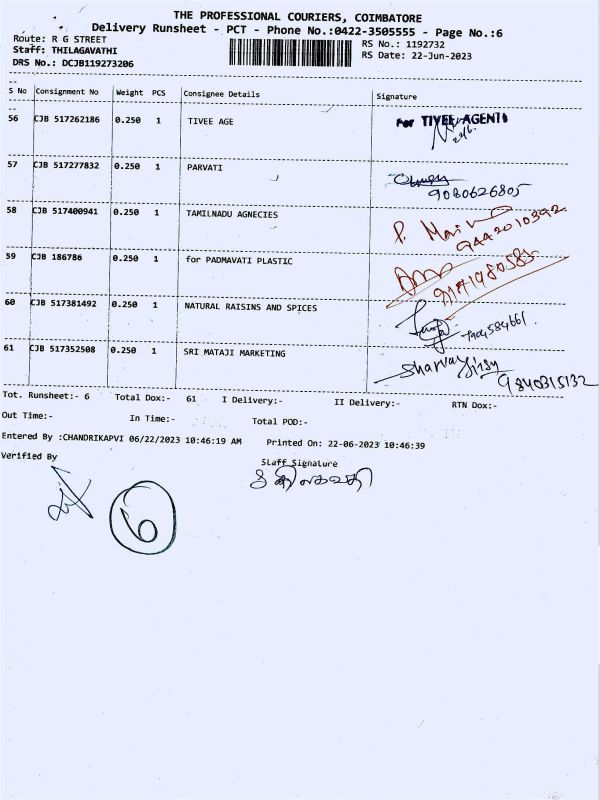 THE PROFESSIONAL COURIERS, COIMBATORE
Delivery Runsheet - PCT - Phone No.:0422-3505555 - Page No.:6
Route: R G STREET RS No.: 1192732
Staff: THILAGAVATHI RS Date: 22-Jun-2023
DRS No.: DCJB119273206
S No Consignment No Weight PCS Consignee Details Signature
56 CJB 517262186 0.250 1 TIVEE AGE For TIVEE AGENTS
22/6.
57 CJB 517277832 0.250 1 PARVATI
9080626805
58 CJB 517400941 0.250 1 TAMILNADU AGNECIES P.
9442010392
59 CJB 186786 0.250 1 for PADMAVATI PLASTIC
60 CJB 517381492 0.250 1 NATURAL RAISINS AND SPICES
61 CJB 517352508 0.250 1 SRI MATAJI MARKETING Sharvan
9840315132
Tot. Runsheet:- 6 Total Dox:- 61 I Delivery:- II Delivery:- RTN Dox:-
Out Time:- In Time:- Total POD:-
Entered By :CHANDRIKAPVI 06/22/2023 10:46:19 AM Printed On: 22-06-2023 10:46:39
Verified By Staff Signature
6